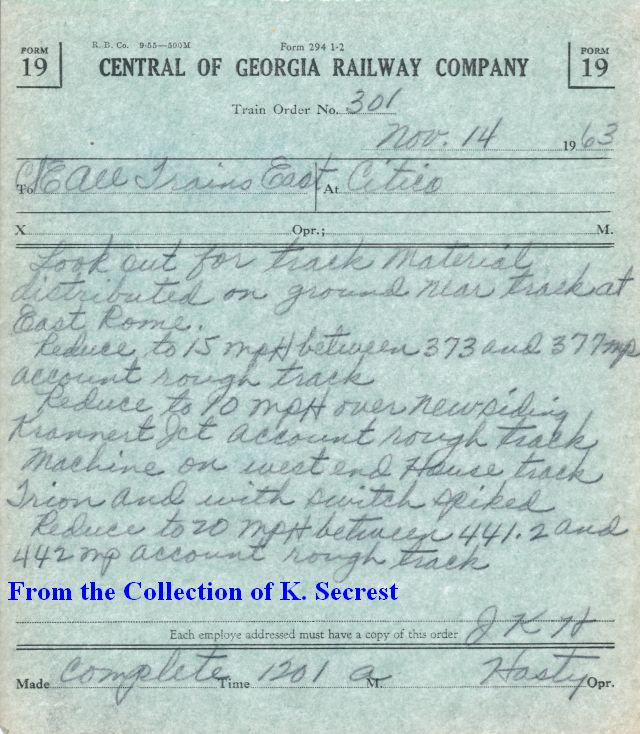 R. B. Co. 9-55—500M Form 294 1-2
FORM 19 CENTRAL OF GEORGIA RAILWAY COMPANY FORM 19
Train Order No. 301
Nov. 14 1963
To C&E All Trains East At Citico
X Opr.; M.
Look out for track material
distributed on ground near track at
East Rome.
Reduce to 15 mpH between 373 and 377 mp
account rough track
Reduce to 10 mpH over new siding
Krannert Jct account rough track
Machine on west end House track
Trion and with switch spiked
Reduce to 20 mpH between 441.2 and
442 mp account rough track
From the Collection of K. Secrest
Each employe addressed must have a copy of this order J K H
Made complete Time 1201 a M. Hasty Opr.